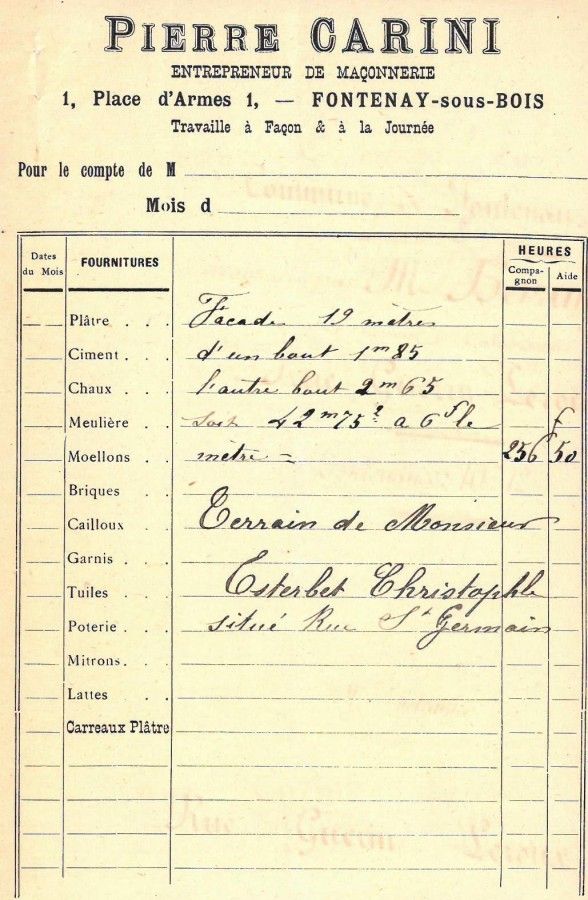 PIERRE CARINI
ENTREPRENEUR DE MAÇONNERIE
1, Place d'Armes 1, — FONTENAY-sous-BOIS
Travaille à Façon & à la Journée
Pour le compte de M
Mois d
Dates du Mois
FOURNITURES
HEURES
Compagnon
Aide
Plâtre . . . Facade 19 mètres
Ciment . . . d'un bout 1m 85
Chaux . . . l'autre bout 2m 65
Meulière . . . soit 42m75² a 6f le f
Moellons . . mètre = 256 50
Briques . .
Cailloux . . Terrain de Monsieur
Garnis . . .
Tuiles . . . Esterbet Christophle
Poterie . . . situé Rue St Germain
Mitrons. . .
Lattes . .
Carreaux Plâtre
Rue Guérin Leroux